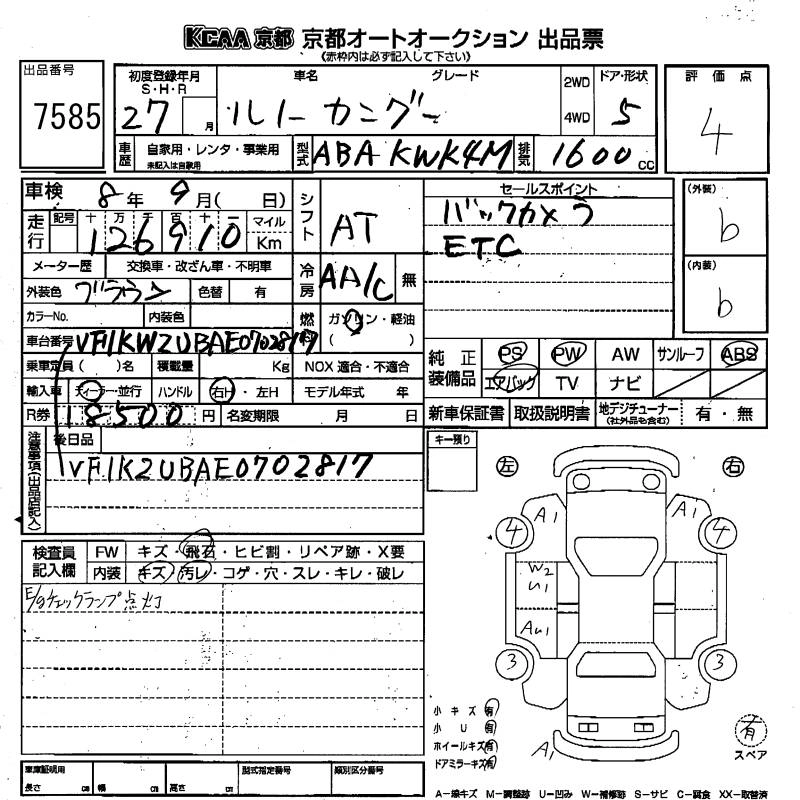 KCAA 京都 京都オートオークション 出品票
(赤枠内は必ず記入して下さい)
出品番号
7585
初度登録年月
S・H・R
27 月
車名
グレード
ルノー カングー
2WD
4WD
ドア・形状
5
評価点
4
車歴
自家用・レンタ・事業用
未記入は自家用
型式
ABA KWK4M
排気
1600 cc
車検 8年 9月( 日)
走行
記号 十 万 千 百 十 一
126910
マイル
Km
シフト
AT
セールスポイント
バックカメラ
ETC
(外装)
b
(内装)
b
メーター歴 交換車・改ざん車・不明車
冷房
AA/C 無
外装色 ブラウン 色替 有
カラーNo. 内装色
燃料
ガソリン・軽油
( )
車台番号 VF1KWZUBAE0702817
乗車定員( )名 積載量 Kg NOX 適合・不適合
輸入車 ディーラー・並行 ハンドル 右H・左H モデル年式 年
R券 18500 円 名変期限 月 日
純正装備品
PS PW AW サンルーフ ABS
エアバッグ TV ナビ
新車保証書 取扱説明書 地デジチューナー
(社外品も含む) 有・無
注意事項(出品店記入)
後日品
VF1KZUBAE0702817
キー預り
左
右
検査員記入欄
FW キズ・飛石・ヒビ割・リペア跡・X要
内装 キズ・汚レ・コゲ・穴・スレ・キレ・破レ
E/gチェックランプ点灯
A1 A1
4 4
W2
U1
AU1
3 3
A1
小キズ 有
小U 有
ホイールキズ 有
ドアミラーキズ 有
有
スペア
車庫証明用
長さ cm 幅 cm 高さ cm
型式指定番号
類別区分番号
A−線キズ M−調整跡 U−凹み W−補修跡 S−サビ C−腐食 XX−取替済